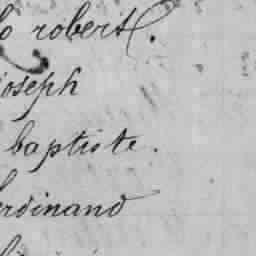 robert.
joseph
baptiste.
ferdinand